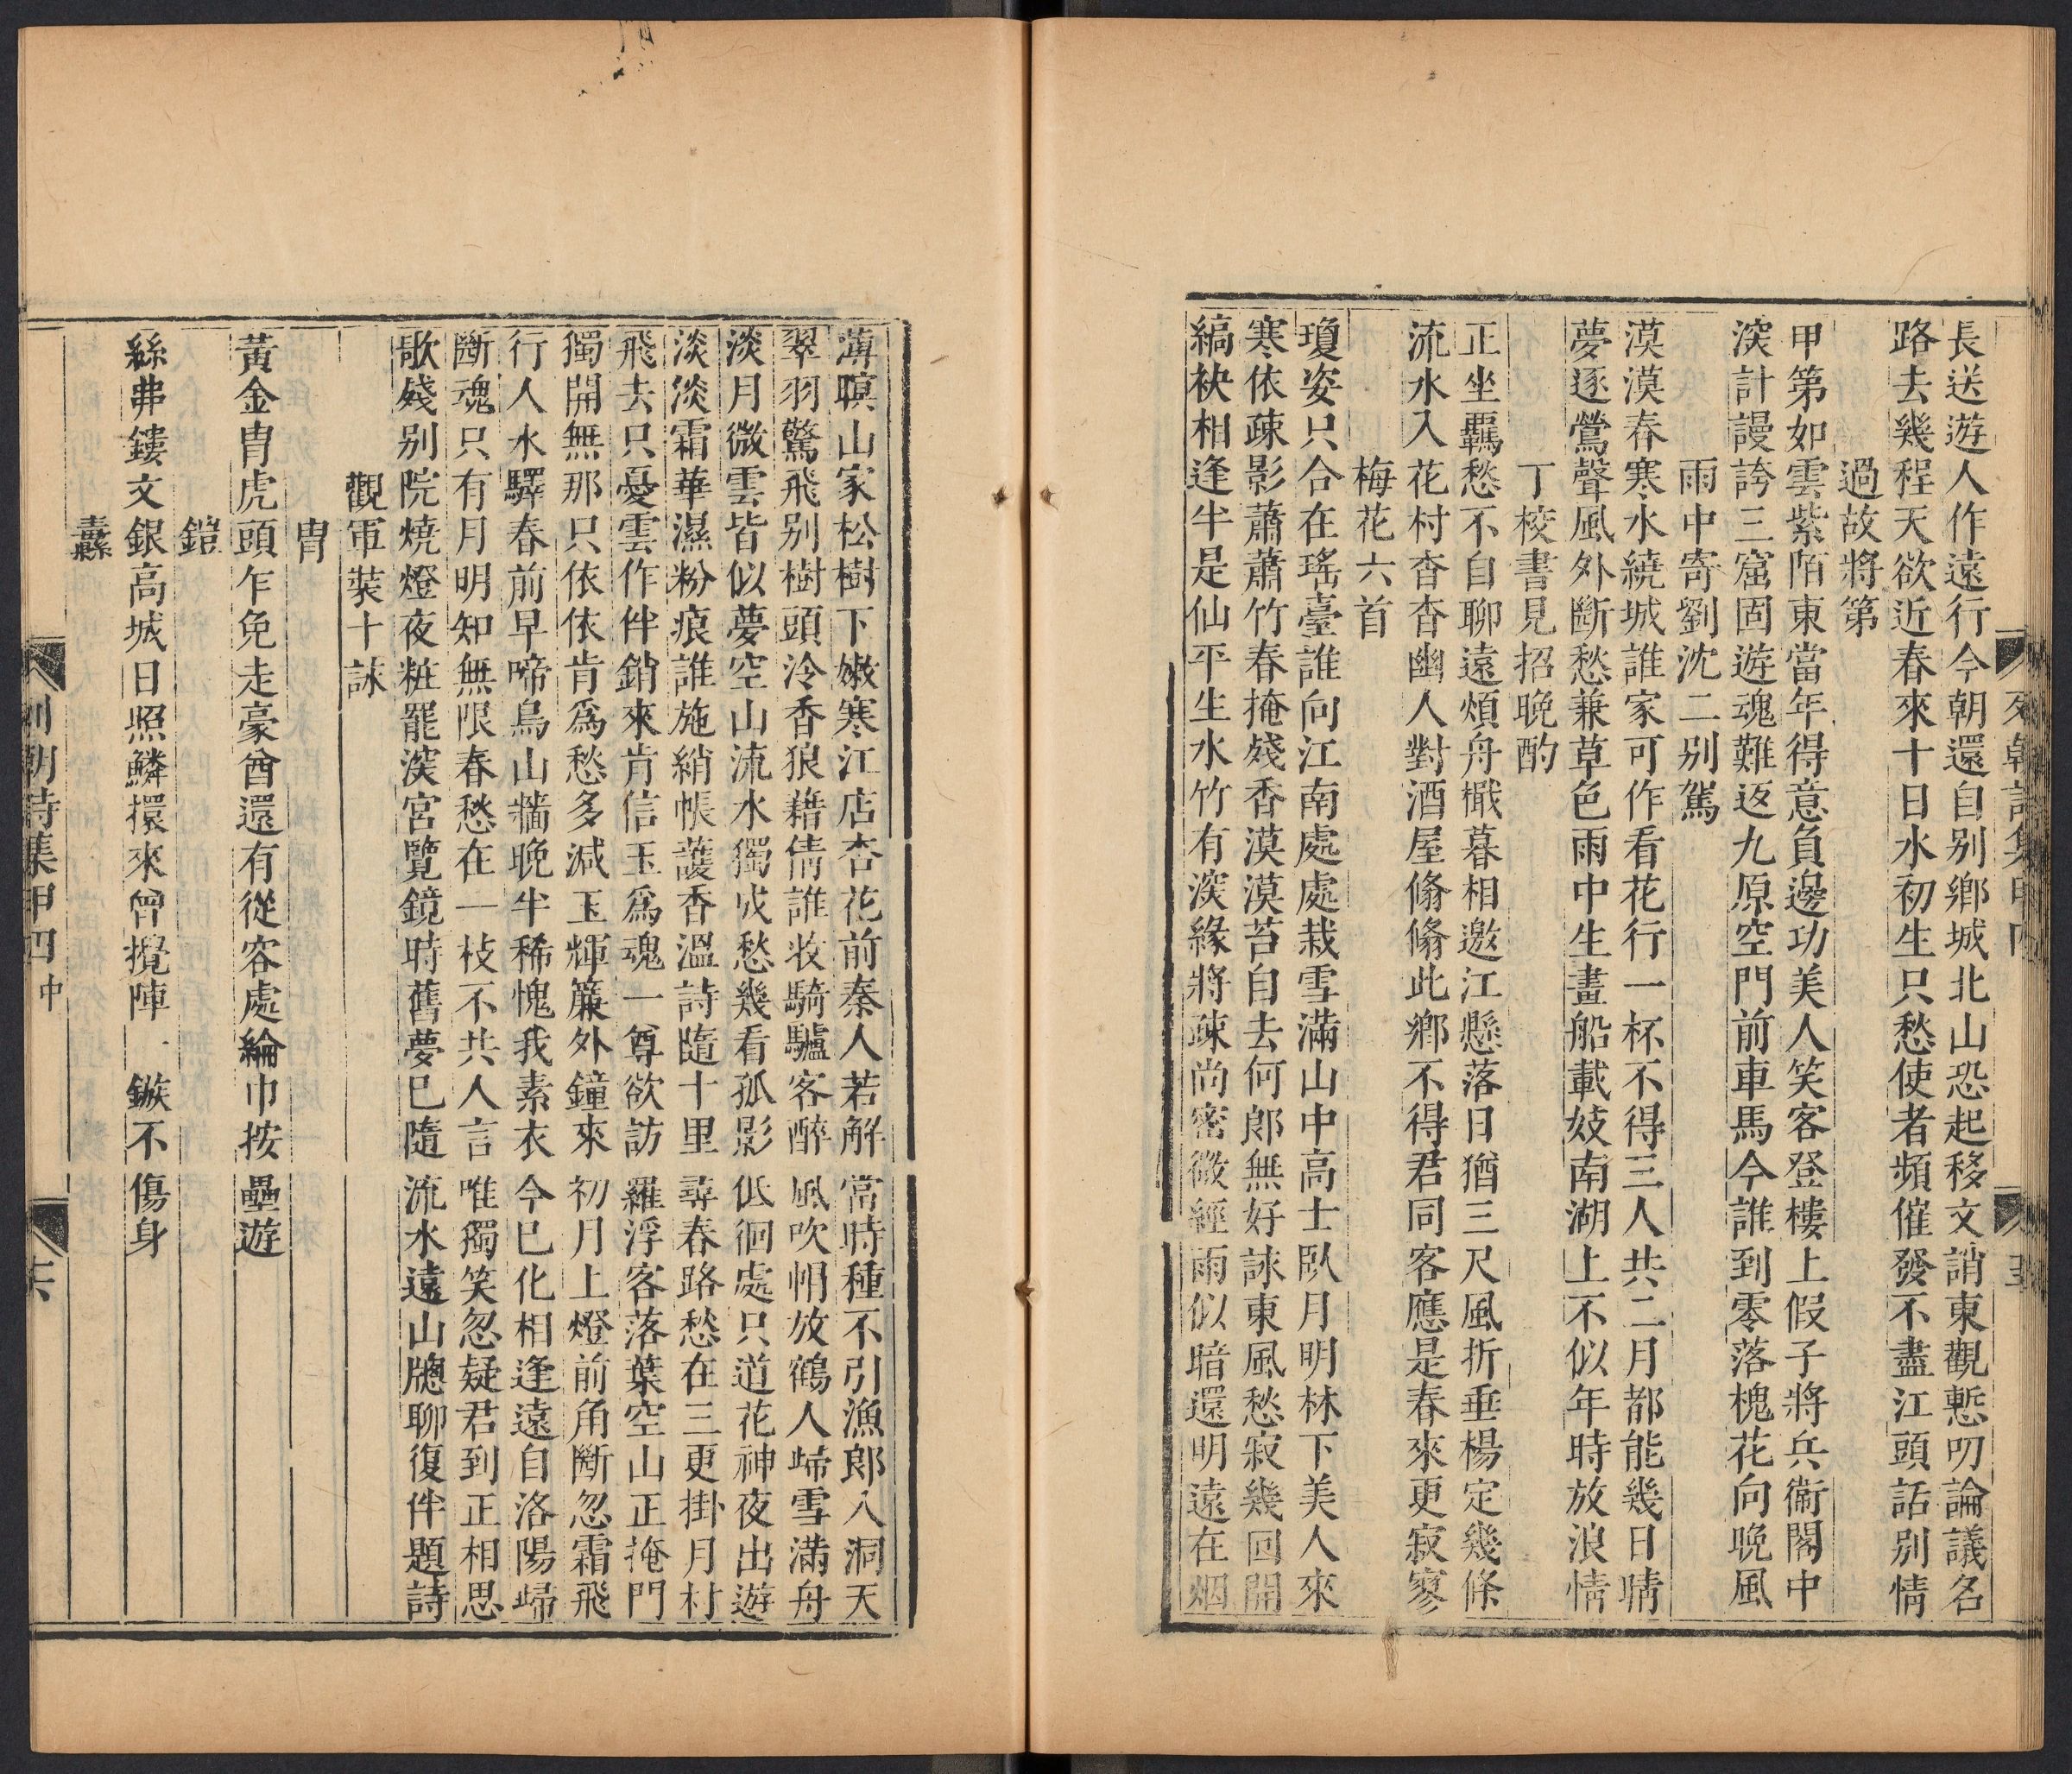 長送遊人作遠行今朝還自别鄉城北山恐起移文誚東觀慙叨論議名
路去幾程天欲近春來十日水初生只愁使者頻催發不盡江頭話别情
過故將第
甲第如雲紫陌東當年得意負邊功美人笑客登樓上假子將兵衞閣中
深計謾誇三窟固遊魂難返九原空門前車馬今誰到零落槐花向晚風
雨中寄劉沈二别駕
漠漠春寒水繞城誰家可作看花行一杯不得三人共二月都能幾日晴
夢逐鶯聲風外斷愁兼草色雨中生畫船載妓南湖上不似年時放浪情
丁校書見招晚酌
正坐羈愁不自聊遠煩舟檝暮相邀江懸落日猶三尺風折垂楊定幾條
流水入花村杳杳幽人對酒屋翛翛此鄉不得君同客應是春來更寂寥
梅花六首
瓊姿只合在瑤臺誰向江南處處栽雪滿山中高士臥月明林下美人來
寒依疎影蕭蕭竹春掩殘香漠漠苔自去何郎無好詠東風愁寂幾回開
縞袂相逢半是仙平生水竹有深緣將疎尚密微經雨似暗還明遠在烟
薄暝山家松樹下嫩寒江店杏花前秦人若解常時種不引漁郎入洞天
翠羽驚飛别樹頭冷香狼藉倩誰收騎驢客醉風吹帽放鶴人歸雪滿舟
淡月微雲皆似夢空山流水獨成愁幾看孤影低徊處只道花神夜出遊
淡淡霜華濕粉痕誰施綃帳護香溫詩隨十里尋春路愁在三更掛月村
飛去只憂雲作伴銷來肯信玉爲魂一尊欲訪羅浮客落葉空山正掩門
獨開無那只依依肯爲愁多減玉輝簾外鐘來初月上燈前角斷忽霜飛
行人水驛春前早啼鳥山牆晚半稀愧我素衣今已化相逢遠自洛陽歸
斷魂只有月明知無限春愁在一枝不共人言唯獨笑忽疑君到正相思
歌殘别院燒燈夜粧罷深宮覽鏡時舊夢已隨流水遠山牕聊復伴題詩
觀軍裝十詠
冑
黃金冑虎頭乍免走豪酋還有從容處綸巾按壘遊
鎧
絲弗鏤文銀高城日照鱗擐來曾攪陣 鏃不傷身
纛
列朝詩集甲四中